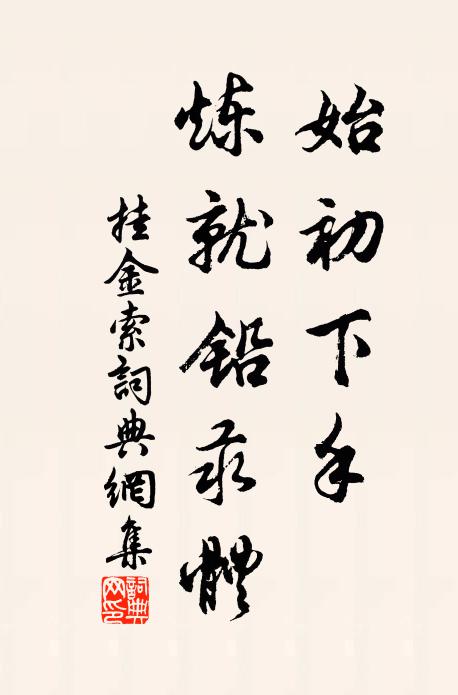 始初下手
煉就鉛汞體
挂金索詞典網集
詞典网印